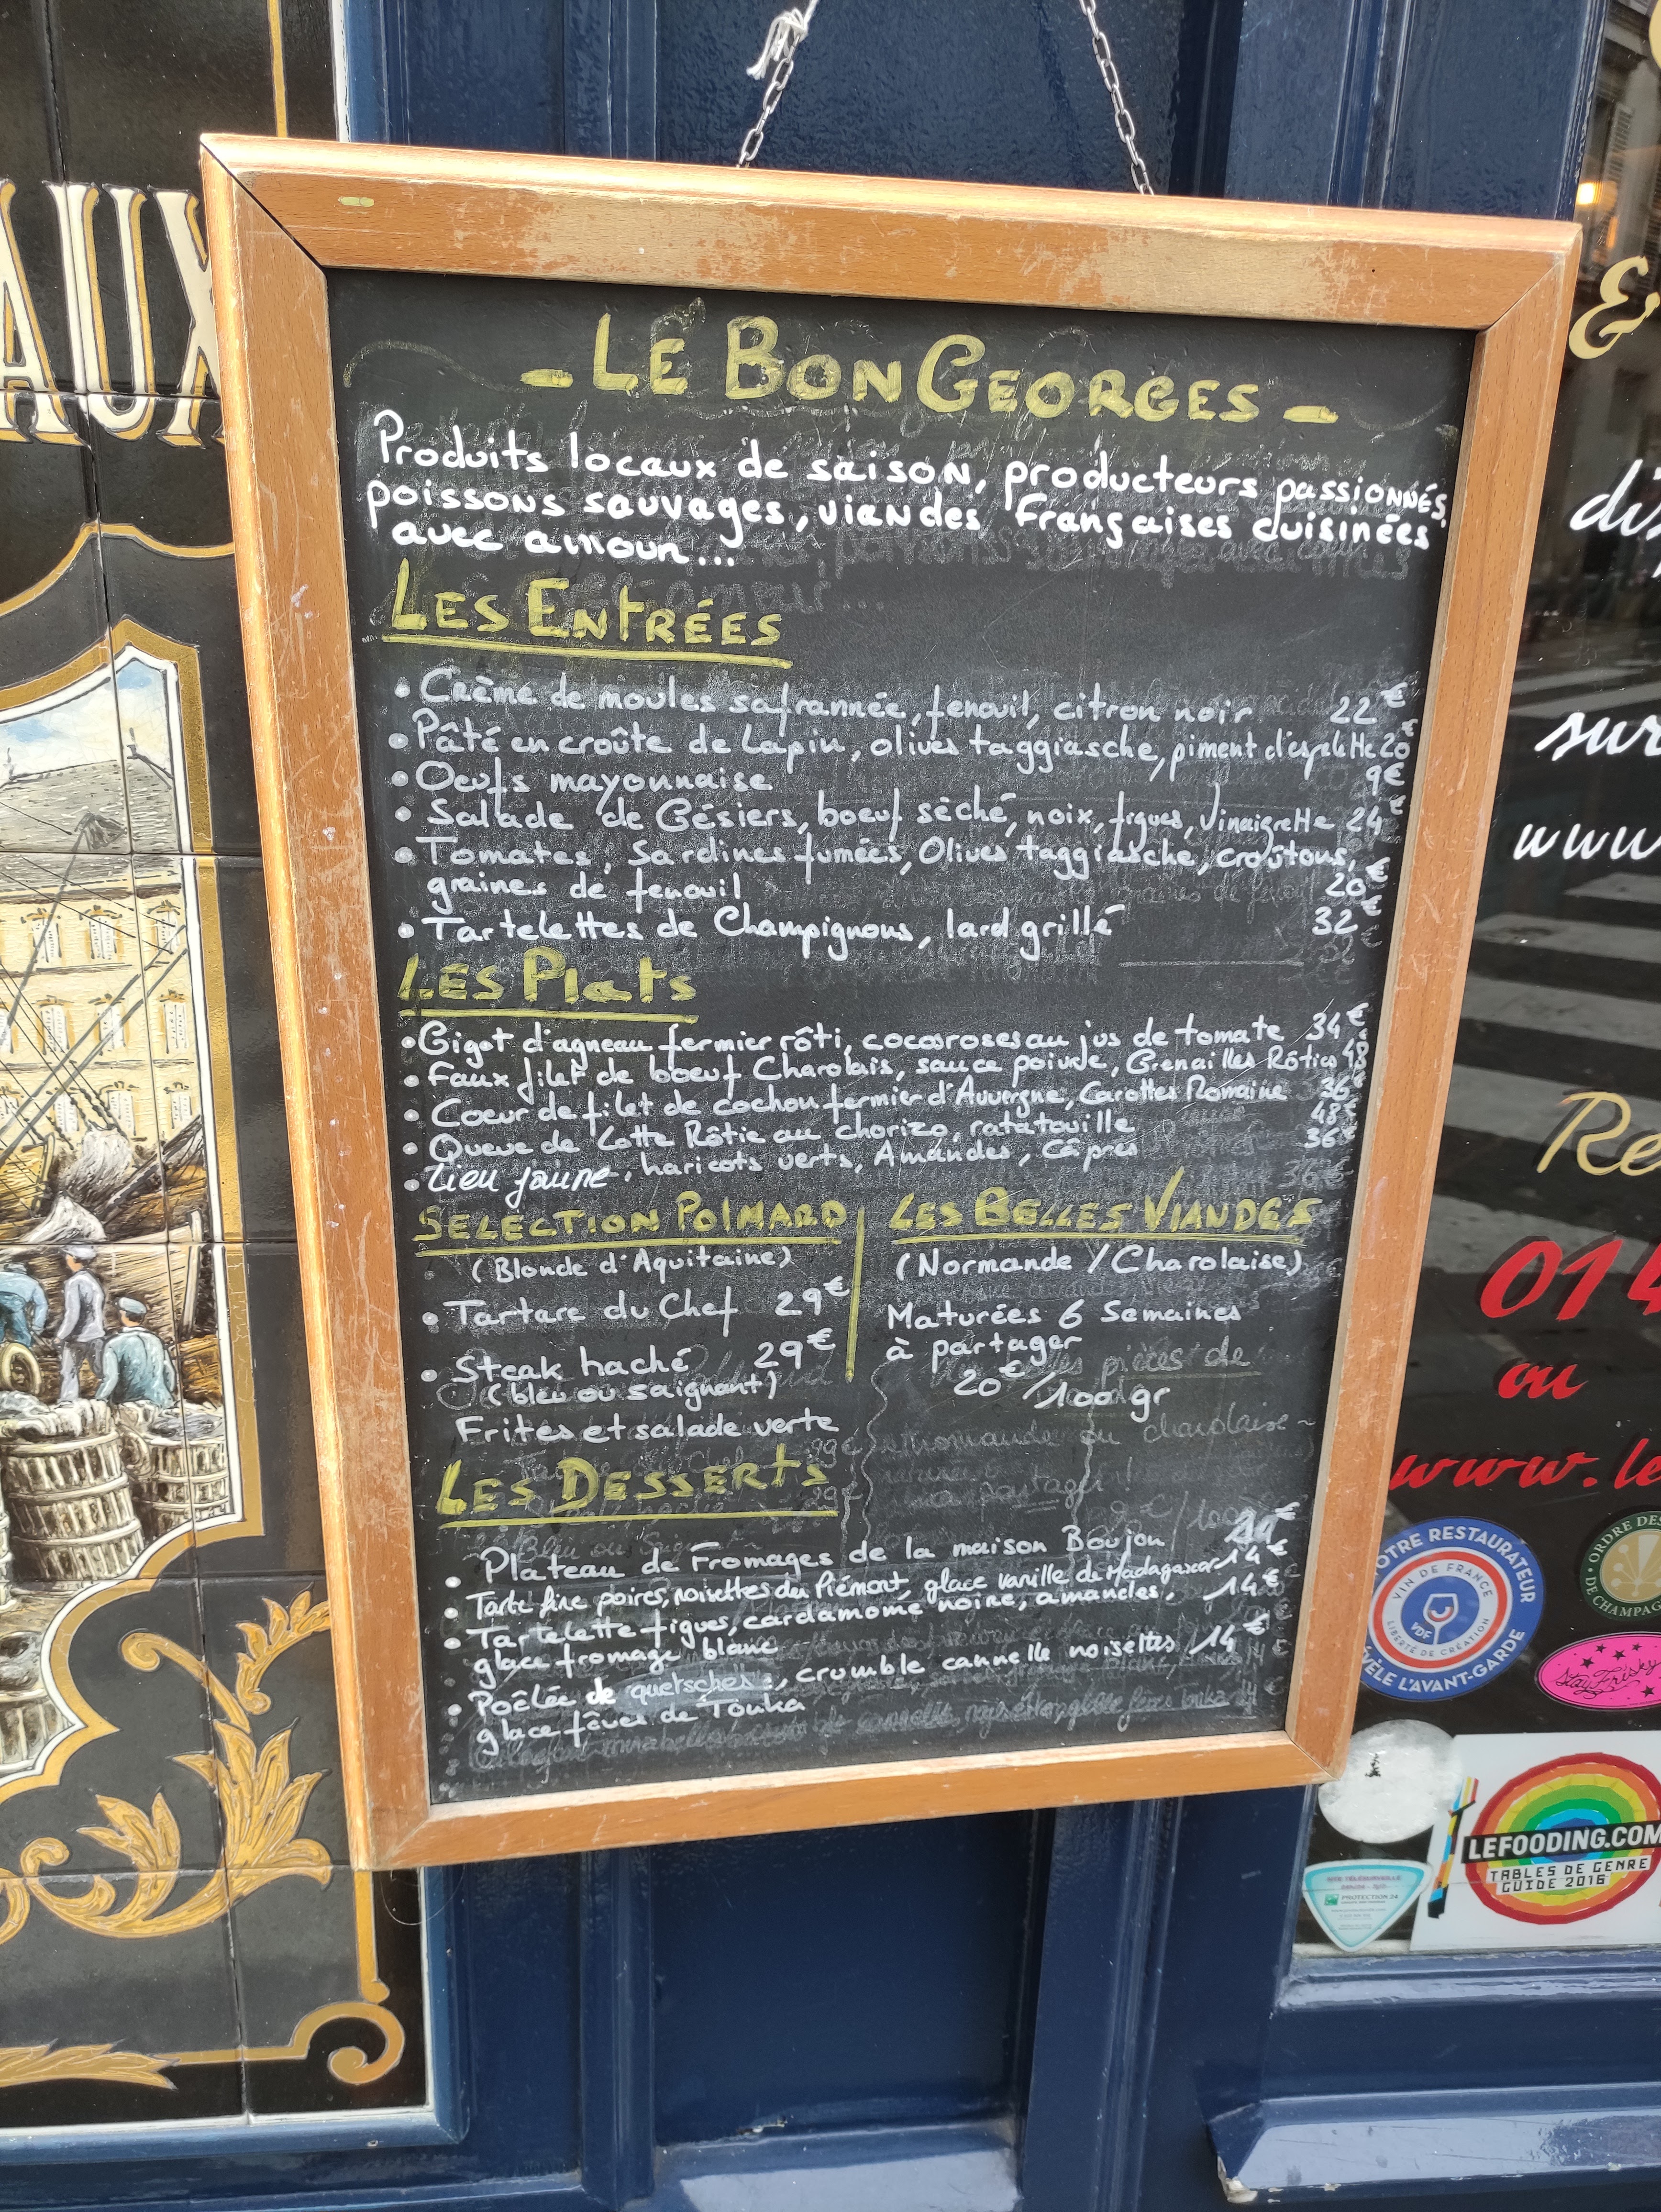 AUX
- LE BON GEORGES -
Produits locaux de saison, producteurs passionnés,
poissons sauvages, viandes Françaises cuisinées
avec amour...
LES ENTRÉES
• Crème de moules safrannée, fenouil, citron noir 22€
• Pâté en croûte de Lapin, olives taggiasche, piment d'espelette 20€
• Oeufs mayonnaise 9€
• Salade de Gésiers, boeuf séché, noix, figues, Vinaigrette 24€
• Tomates, Sardines fumées, Olives taggiasche, croûtons,
graines de fenouil 20€
• Tartelettes de Champignons, lard grillé 32€
LES Plats
• Gigot d'agneau fermier rôti, cocos roses au jus de tomate 34€
• Faux filet de boeuf Charolais, sauce poivre, Grenailles Rôties 48€
• Coeur de filet de cochon fermier d'Auvergne, Carottes Romaine 36€
• Queue de Lotte Rôtie au chorizo, ratatouille 48€
• Lieu jaune, haricots verts, Amandes, Câpres 36€
SELECTION POLMARD
(Blonde d'Aquitaine)
• Tartare du Chef 29€
• Steak haché 29€
(bleu ou saignant)
Frites et salade verte
LES BELLES VIANDES
(Normande / Charolaise)
Maturées 6 Semaines
à partager
20€/100gr
LES DESSERTS
• Plateau de Fromages de la maison Boujon
• Tarte fine poires, noisettes du Piémont, glace vanille de Madagascar 14€
• Tartelette figues, cardamome noire, amandes, 14€
glace fromage blanc
• Poêlée de quetsches, crumble cannelle noisettes 14€
glace fèves de Tonka
&
sur
www
Re
01 4
ou
www.le
OTRE RESTAURATEUR
VIN DE FRANCE
VDF
LIBERTÉ DE CRÉATION
ÉVÈLE L'AVANT-GARDE
ORDRE DES
DE CHAMPAG
Stay Frisky
LEFOODING.COM
TABLES DE GENRE
GUIDE 2016
PROTECTION 24